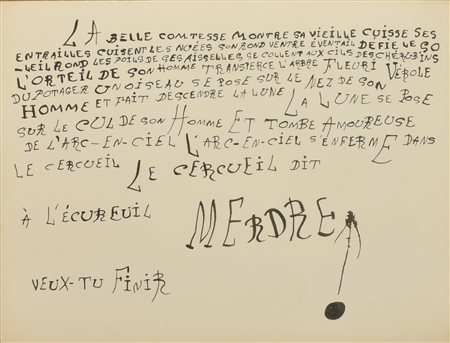 LA BELLE COMTESSE MONTRE SA VIEILLE CUISSE SES
ENTRAILLES CUISENT LES NUÉES SON ROND VENTRE ÉVENTAIL DEFIE LE SO
-LEIL ROND LES POILS DE SES AISSELLES SE COLLENT AUX CILS DES CHÉRUBINS
L'ORTEIL DE SON HOMME TRANSPERCE L'ARBRE FLEURI VÉROLE
DU POTAGER UN OISEAU SE POSE SUR LE NEZ DE SON
HOMME ET FAIT DESCENDRE LA LUNE LA LUNE SE POSE
SUR LE CUL DE SON HOMME ET TOMBE AMOUREUSE
DE L'ARC-EN-CIEL L'ARC-EN-CIEL S'ENFERME DANS
LE CERCUEIL LE CERCUEIL DIT
À L'ÉCUREUIL MERDRE
VEUX-TU FINIR